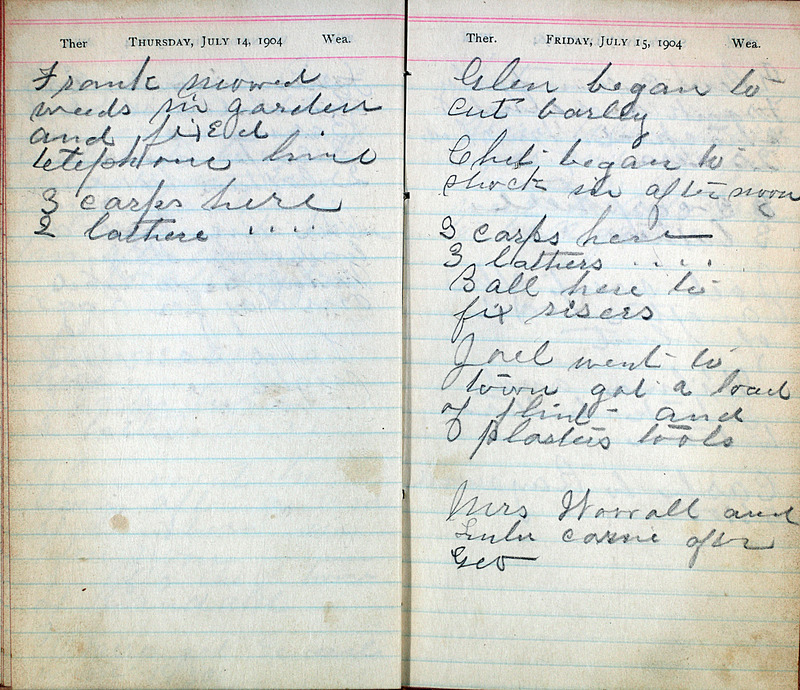 Ther THURSDAY, JULY 14, 1904 Wea.
Frank mowed
weeds in garden
and fixed
telephone line
3 carps here
2 lathers ''''
Ther. FRIDAY, JULY 15, 1904 Wea.
Glen began to
cut barley
Chet began to
shock in after noon
3 carps here
3 lathers ....
Ball here to
fix risers
Joel went to
town got a load
of flint - and
plasters tools
Mrs Worrall and
Lulu came after
Geo